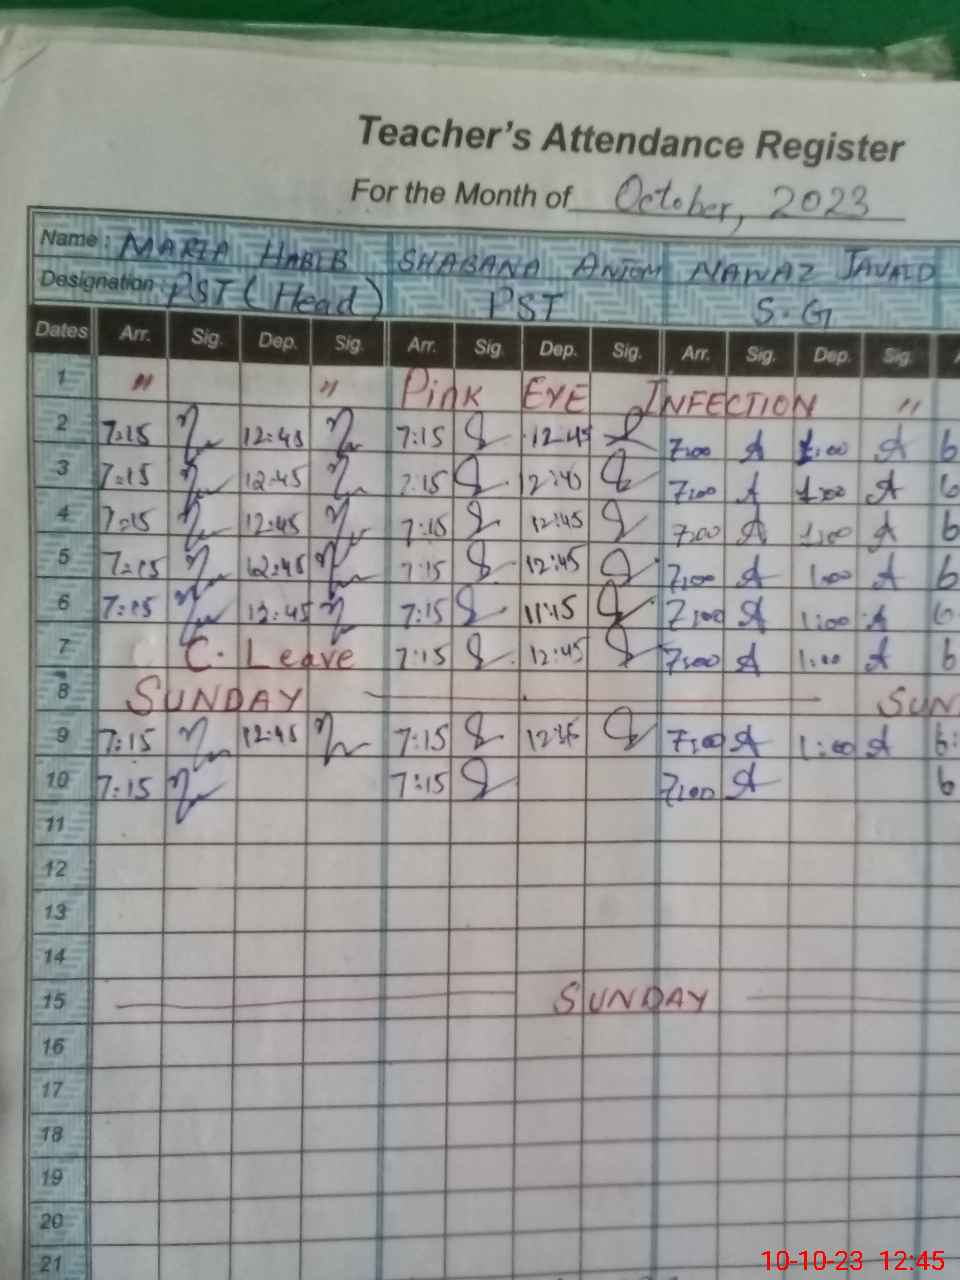 Teacher's Attendance Register
For the Month of October, 2023
Name: MARIA HABIB SHABANA ANJOM NAWAZ JAVAID
Designation PST (Head) PST S.G
Dates Arr. Sig. Dep. Sig. Arr. Sig. Dep. Sig. Arr. Sig. Dep. Sig. A
1 " " Pink EYE INFECTION "
2 7:15 12:45 7:15 12:45 7:00 1:00 6
3 7:15 12:45 7:15 12:45 7:00 1:00 6
4 7:15 12:45 7:15 12:45 7:00 1:00 6
5 7:15 12:45 7:15 12:45 7:00 1:00 6
6 7:15 12:45 7:15 11:15 7:00 1:00 6
7 C. Leave 7:15 12:45 7:00 1:00 6
8 SUNDAY SUN
9 7:15 12:45 7:15 7:00 1:00 6:
10 7:15 7:15 7:00 6
11
12
13
14
15 SUNDAY
16
17
18
19
20
21
10-10-23 12:45